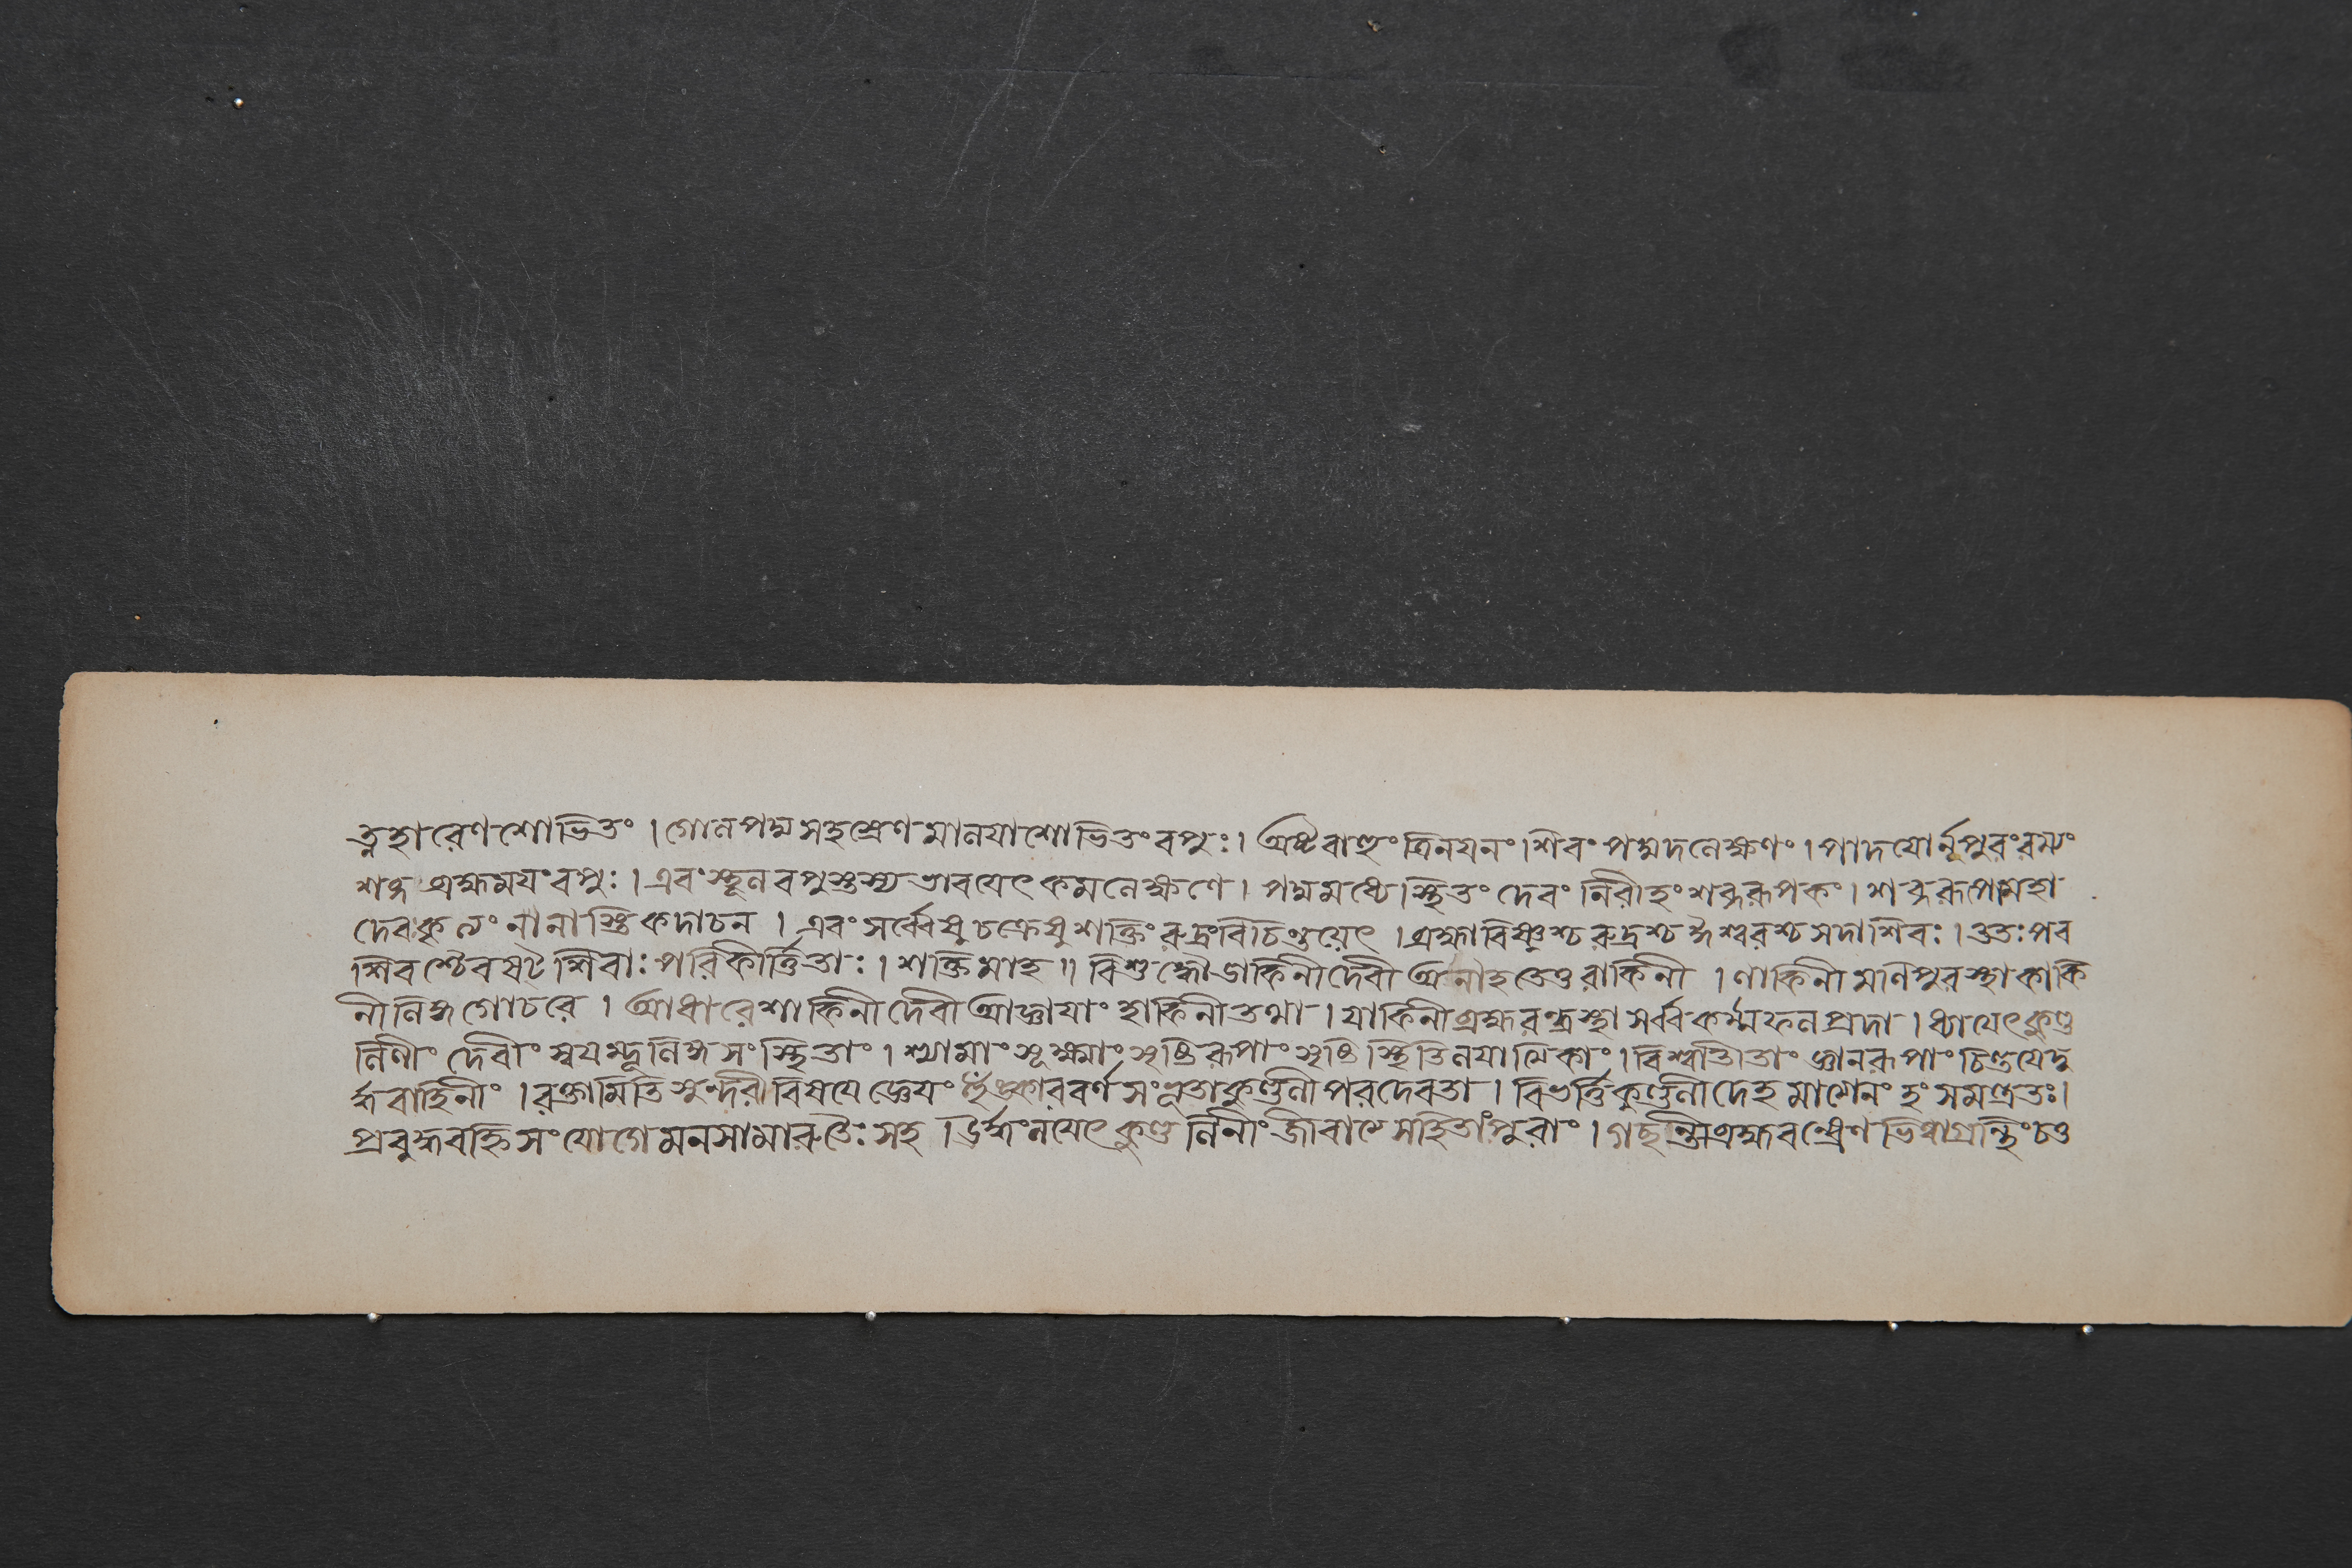 ত্নহারেণ শোভিতং । গোলপদ্মসহস্রেণ মালযাশোভিতং বপুঃ । অষ্টবাহুং ত্রিনযনং । শিবং পদ্মদলেক্ষণং । পাদযোর্নূপুরং রম্যং
শব্দব্রহ্মমযং বপুঃ । এবং স্থূলবপুস্তস্য ভাবযেৎ কমলেক্ষণে । পদ্মমধ্যে স্থিতং দেবং নিরীহং শব্দরূপকং । শব্দরূপমহা
দেবকুলং নানাস্তি কদাচন । এবং সর্ব্বেষু চক্রেষু শক্তিং রুদ্রং বিচিন্তয়েৎ । ব্রহ্মাবিষ্ণুশ্চ রুদ্রশ্চ ঈশ্বরশ্চ সদাশিবঃ । ততঃ পর
শিবশ্চৈব ষট্ শিবাঃ পরিকীর্ত্তিতাঃ । শক্তিমাহ ॥ বিশুদ্ধৌ ডাকিনীদেবী অনাহতেতু রাকিনী । লাকিনী মণিপুরস্থা কাকি
নী লিঙ্গগোচরে । আধারে শাকিনীদেবী আজ্ঞাযাং হাকিনী তথা । যাকিনী ব্রহ্মরন্ধ্রস্থা সর্ব্বকর্ম্মফলপ্রদা । ধ্যাযেৎ কুণ্ড
লিনীং দেবীং স্বযম্ভূলিঙ্গসংস্থিতাং । শ্যামাং সূক্ষ্মাং সৃষ্টিরূপাং সৃষ্টিস্থিতিলযাত্মিকাং । বিশ্বাতীতাং জ্ঞানরূপাং চিন্তযেদূ
র্দ্ধবাহিনীং । রক্তামিতি সুন্দরীবিষযে জ্ঞেযং হুঁঙ্কারবর্ণসংভূতা কুণ্ডলী পরদেবতা । বিভর্ত্তি কুণ্ডলী দেহমাত্মেনং হং সমণ্ত্রতঃ ।
প্রবুদ্ধবহ্নিসংযোগে মনসা মারুতৈঃ সহ । ঊর্দ্ধং নযেৎ কুণ্ডলিনীং জীবাত্মসহিতাং পুরাং । গচ্ছন্তি ব্রহ্মরন্ধ্রেণ ভিত্বা গ্রন্থিং চত